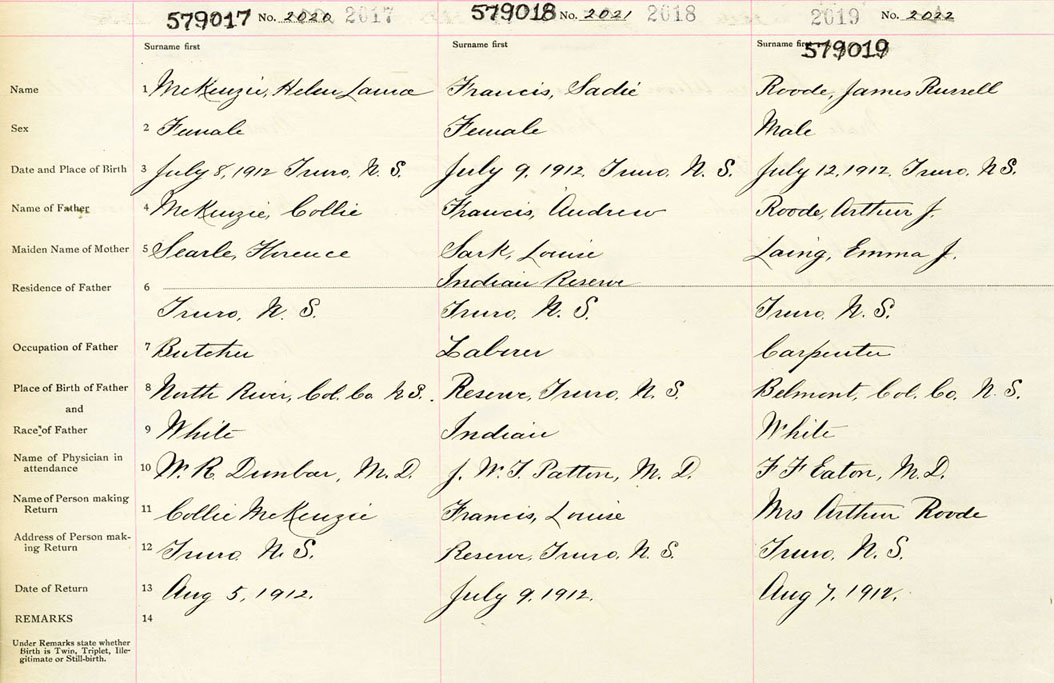 579017 No. 2020 2017 579018 No. 2021 2018 2019 No. 2022
Surname first Surname first Surname first 579019
Name 1 McKenzie, Helen Laura Francis, Sadie Roode, James Russell
Sex 2 Female Female Male
Date and Place of Birth 3 July 8, 1912 Truro, N. S. July 9, 1912, Truro, N. S. July 12, 1912, Truro, N S.
Name of Father 4 McKenzie, Collie Francis, Andrew Roode, Arthur J.
Maiden Name of Mother 5 Searle, Florence Sark, Louise Laing, Emma J.
Residence of Father 6 Indian Reserve
Truro, N. S. Truro, N. S. Truro, N. S.
Occupation of Father 7 Butcher Laborer Carpenter
Place of Birth of Father 8 North River, Col. Co. N.S. Reserve, Truro, N. S. Belmont, Col. Co, N. S.
and
Race of Father 9 White Indian White
Name of Physician in
attendance 10 W. R. Dunbar, M. D. J. W. T. Patton, M. D. F F Eaton, M. D.
Name of Person making
Return 11 Collie McKenzie Francis, Louise Mrs Arthur Roode
Address of Person mak-
ing Return 12 Truro, N. S. Reserve, Truro, N. S. Truro, N. S.
Date of Return 13 Aug 5, 1912. July 9, 1912. Aug 7, 1912.
REMARKS 14
Under Remarks state whether
Birth is Twin, Triplet, Ille-
gitimate or Still-birth.